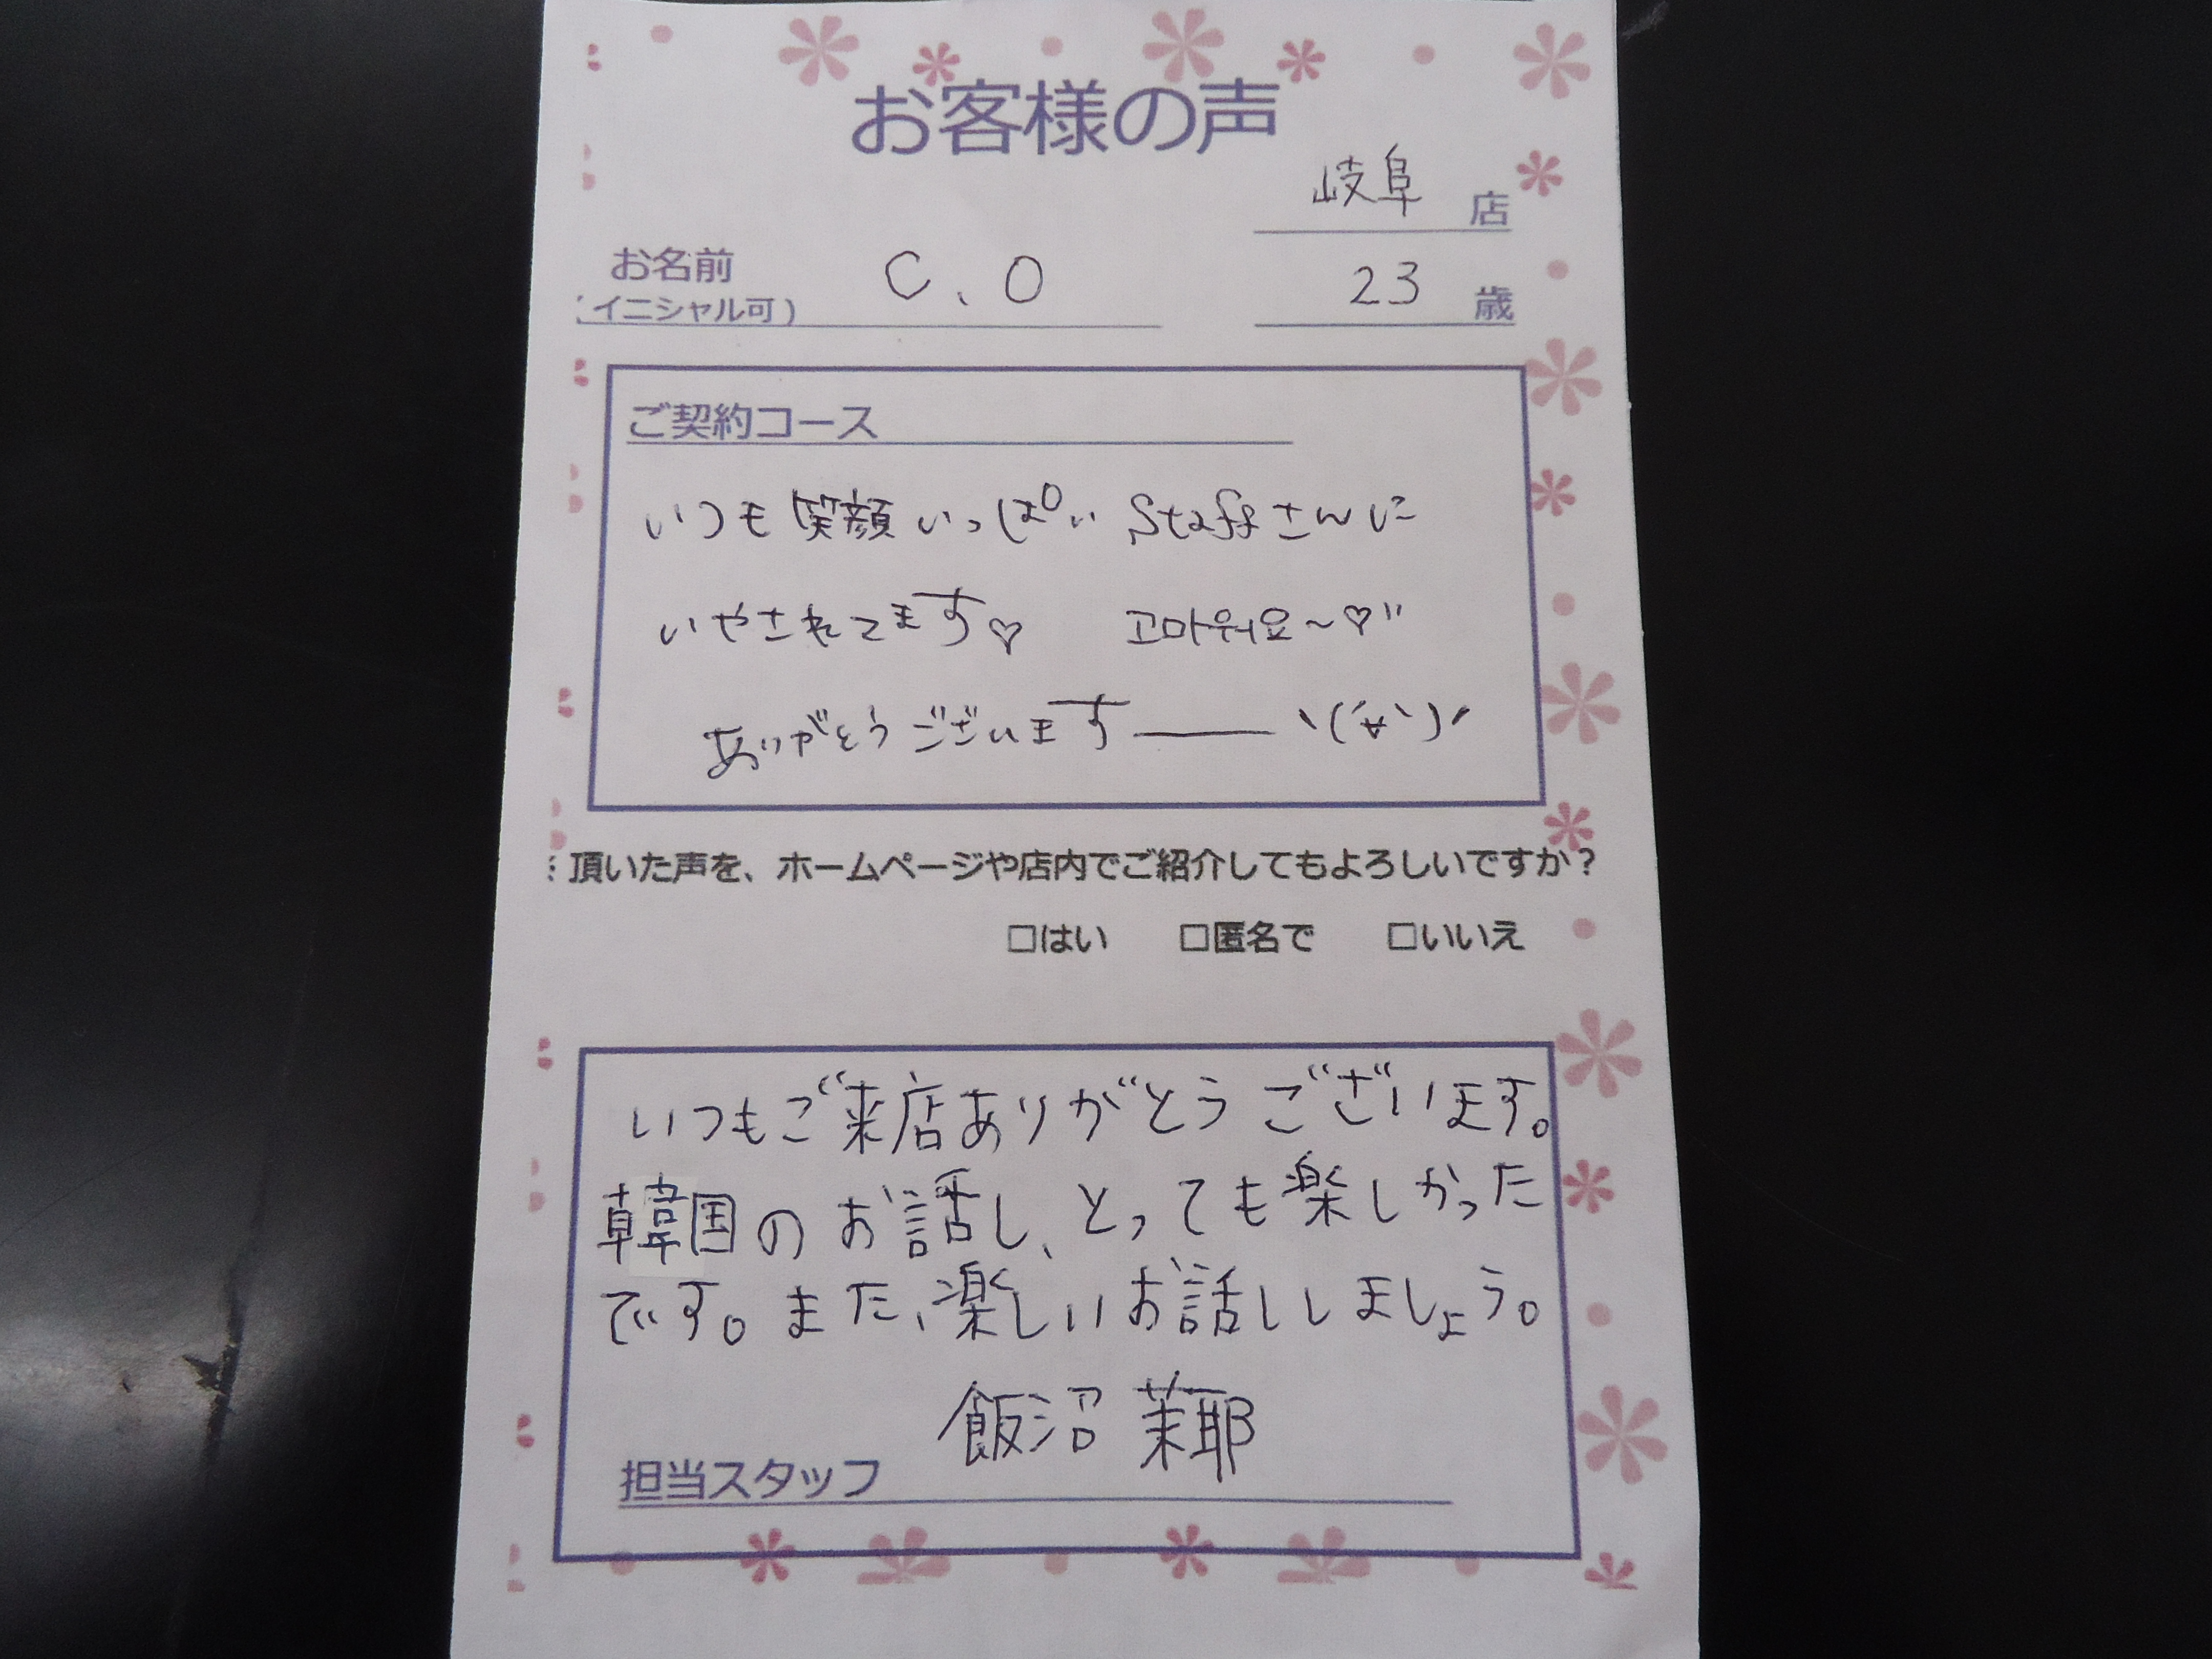 お客様の声
岐阜 店
お名前 C.O 23 歳
(イニシャル可)
ご契約コース
いつも笑顔いっぱい Staffさんに
いやされてます♡ 고마워요~♡"
ありがとうございます――ヽ(´∀`)ﾉ
頂いた声を、ホームページや店内でご紹介してもよろしいですか?
□はい □匿名で □いいえ
いつもご来店ありがとうございます。
韓国のお話し、とっても楽しかった
です。また、楽しいお話ししましょう。
飯沼 茉耶
担当スタッフ